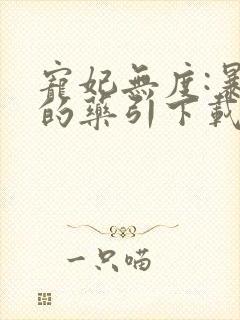 寵妃無度:暴
的藥引下載
一只喵